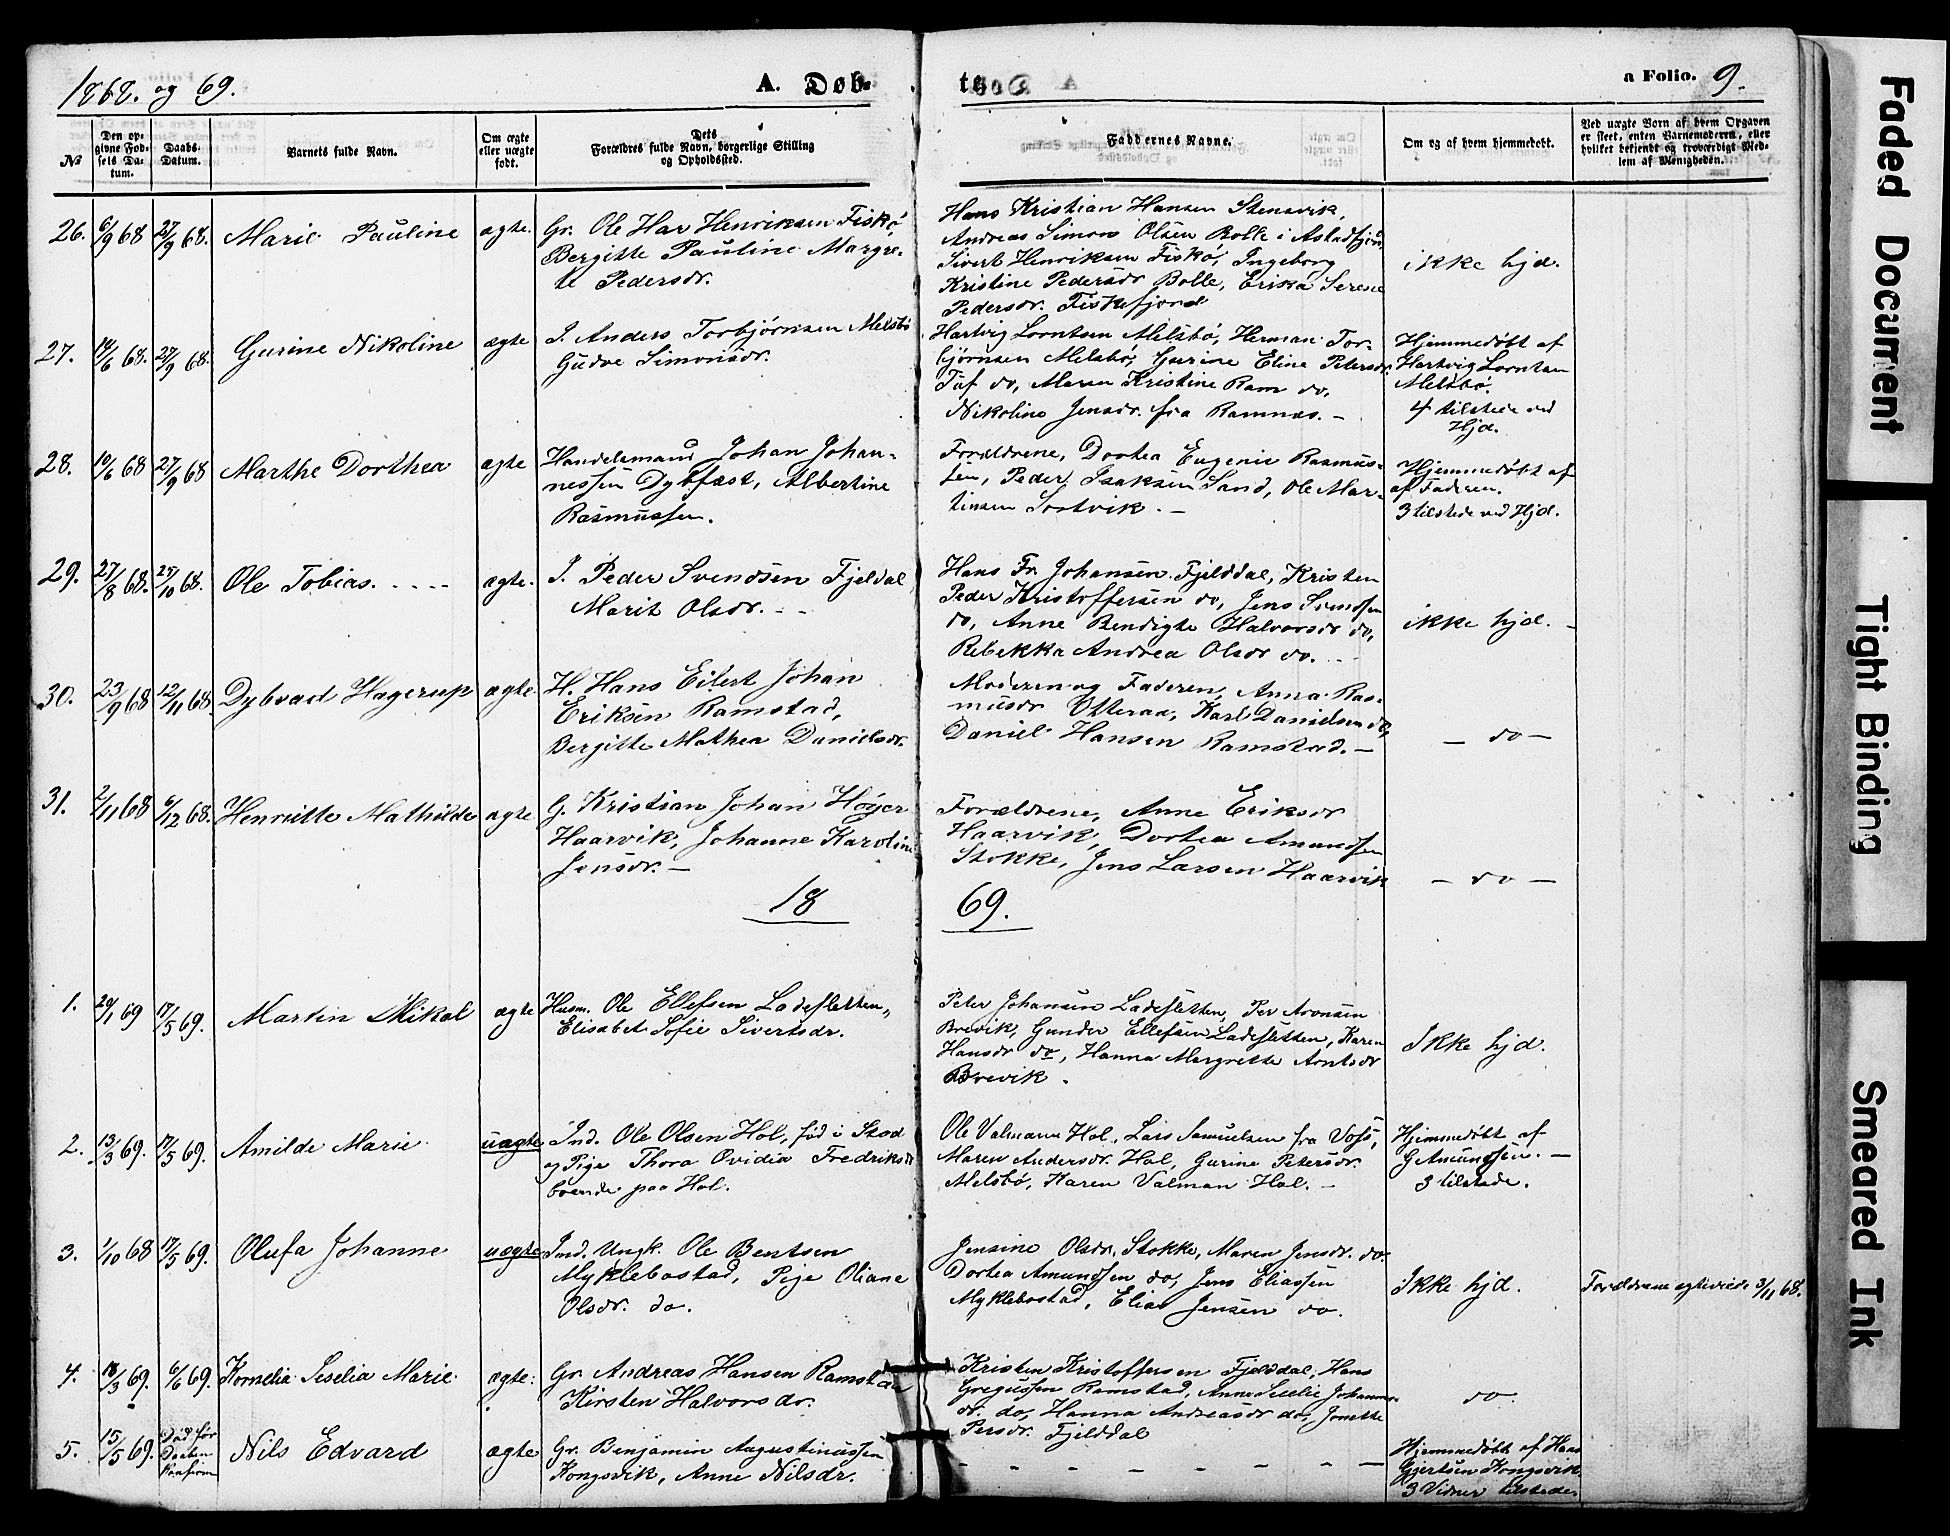 1868. og 69.
A. Døb-
te
a Folio. 9.
№
Den op-
givne Fød-
sels Da-
tum.
Daabs-
Datum.
Barnets fulde Navn.
Om ægte
eller uægte
født.
Dets
Forældres fulde Navn, borgerlige Stilling
og Opholdssted.
Faddernes Navne.
Om og af hvem hjemmedøbt.
Ved uægte Børn af hvem Opgaven
er skeet, enten Barnemoderen, eller
hvilket bekjendt og troværdigt Med-
lem af Menigheden.
26. 6/9 68 27/9 68. Marie Pauline ægte.
Gr. Ole Har Henriksen Fiskø,
Bergitte Pauline Margre-
te Pedersdr.
Hans Kristian Hansen Stensvik,
Andreas Simon Olsen Bolle i Astadfjord
Sivert Henriksen Fiskø, Ingeborg
Kristine Pedersdr Bolle, Erika Serene
Pedersdr. Fiskefjord
ikke hjd.
27. 14/6 68. 27/9 68. Gurine Nikoline ægte
I. Anders Torbjørnsen Melsbø
Gudve Simonsdr.
Hartvig Lorntsen Melsbø, Herman Tor-
bjørnsen Melsbø, Gurine Eline Petersdr.
Taf do, Maren Kristine Ram do,
Nikoline Jensdr. fra Ramnæs. –
Hjemmedøbt af
Hartvig Lorntsen
Melsbø.
4 tilstede ved
Hjd.
28. 10/6 68 27/9 68 Marthe Dorthea ægte
Handelsmand Johan Johan-
nessen Dybfæst, Albertine
Rasmussen.
Forældrene, Dortea Eugenie Rasmus-
sen, Peder Isaksen Sand, Ole Mar-
tinsen Sortvik. –
Hjemmedøbt af
af Faderen.
3 tilstede ved Hjd.
29. 27/8 68. 25/10 68. Ole Tobias. ægte.
I. Peder Svendsen Fjeldal
Marit Olsdr. –
Hans Fr. Johansen Fjelddal, Kristen
Peder Kristoffersen do, Jens Svendsen
do, Anne Bendigte Halvorsdr do,
Rebekka Andrea Olsdr do.
ikke hjd. –
30. 23/9 68 12/11 68. Dybvad Hagerup ægte
H. Hans Eilert Johan
Eriksen Ramstad,
Bergitte Mathea Danielsdr.
Moderen og Faderen, Anna Ras-
musdr Otteraa, Karl Danielsen do,
Daniel Hansen Ramstad. –
– do –
31. 2/11 68 6/12 68. Henriette Mathilde ægte
G. Kristian Johan Høyer
Haarvik, Johanne Karoline
Jensdr. –
Forældrene, Anne Eriksdr
Haarvik, Dortea Amundsen
Stokke, Jens Larsen Haarvik
– do –
18 69.
1. 29/1 69 17/5 69. Martin Mikal ægte
Husm. Ole Ellefsen Ladesletten,
Elisabet Sofie Sivertsdr.
Peter Johansen Ladesletten, Per Aronsen
Brevik, Gunder Ellefsen Ladesletten, Karen
Hansdr do, Hanna Margrethe Arntsdr
Brevik.
Ikke hjd.
2. 13/3 69. 17/5 69. Amilde Marie uægte
Ind. Ole Olsen Hol, fød i Stod
og Pige Thora Ovidia Fredriksdr
boende paa Hol.
Ole Valmann Hol, Lars Samuelsen fra Voss,
Maren Andersdr. Hol, Gurine Petersdr.
Melsbø, Karen Valman Hol. –
Hjemmedøbt af
G Amundsen. –
3 tilstede.
3. 1/10 68 17/5 69. Olufa Johanne uægte
Ind. Ungk. Ole Bentsen
Myklebostad, Pige Oliane
Olsdr. do.
Jensine Olsdr. Stokke, Maren Jensdr. do.
Dortea Amundsen do, Jens Eliassen
Myklebostad, Elias Jensen do.
Ikke hjd.
Forældrene egteviede 3/11 68.
4. 18/3 69. 6/6 69. Kornelia Seselia Marie ægte.
Gr. Andreas Hansen Ramstad
Kirsten Halvorsdr.
Kristen Kristoffersen Fjelddal, Hans
Gregussen Ramstad, Anne Seselie Johanns-
dr. do, Hanna Andreasdr do, Jonette
Persdr. Fjelddal
do.
5. 15/5 69. Død før
Daaben
Konfirm Nils Edvard ægte
Gr. Benjamin Augustinussen
Kongsvik, Anne Nilsdr.
– – – – – – – –
Hjemmedøbt af Hans
Gjertsen Kongsvik
3 Vidner tilstede.
Faded Document
Tight Binding
Smeared Ink